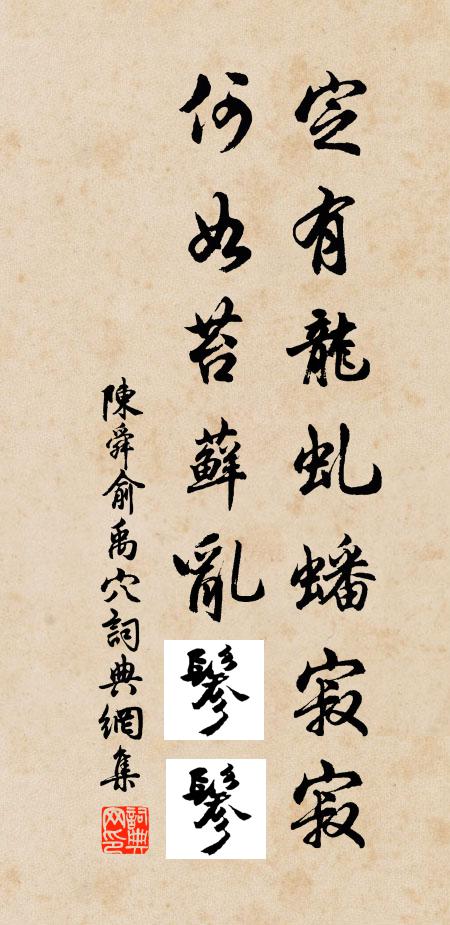 定有龍虬蟠寂寂
何如苔蘚亂鬖鬖
陳舜俞禹穴詞典網集
詞典网印